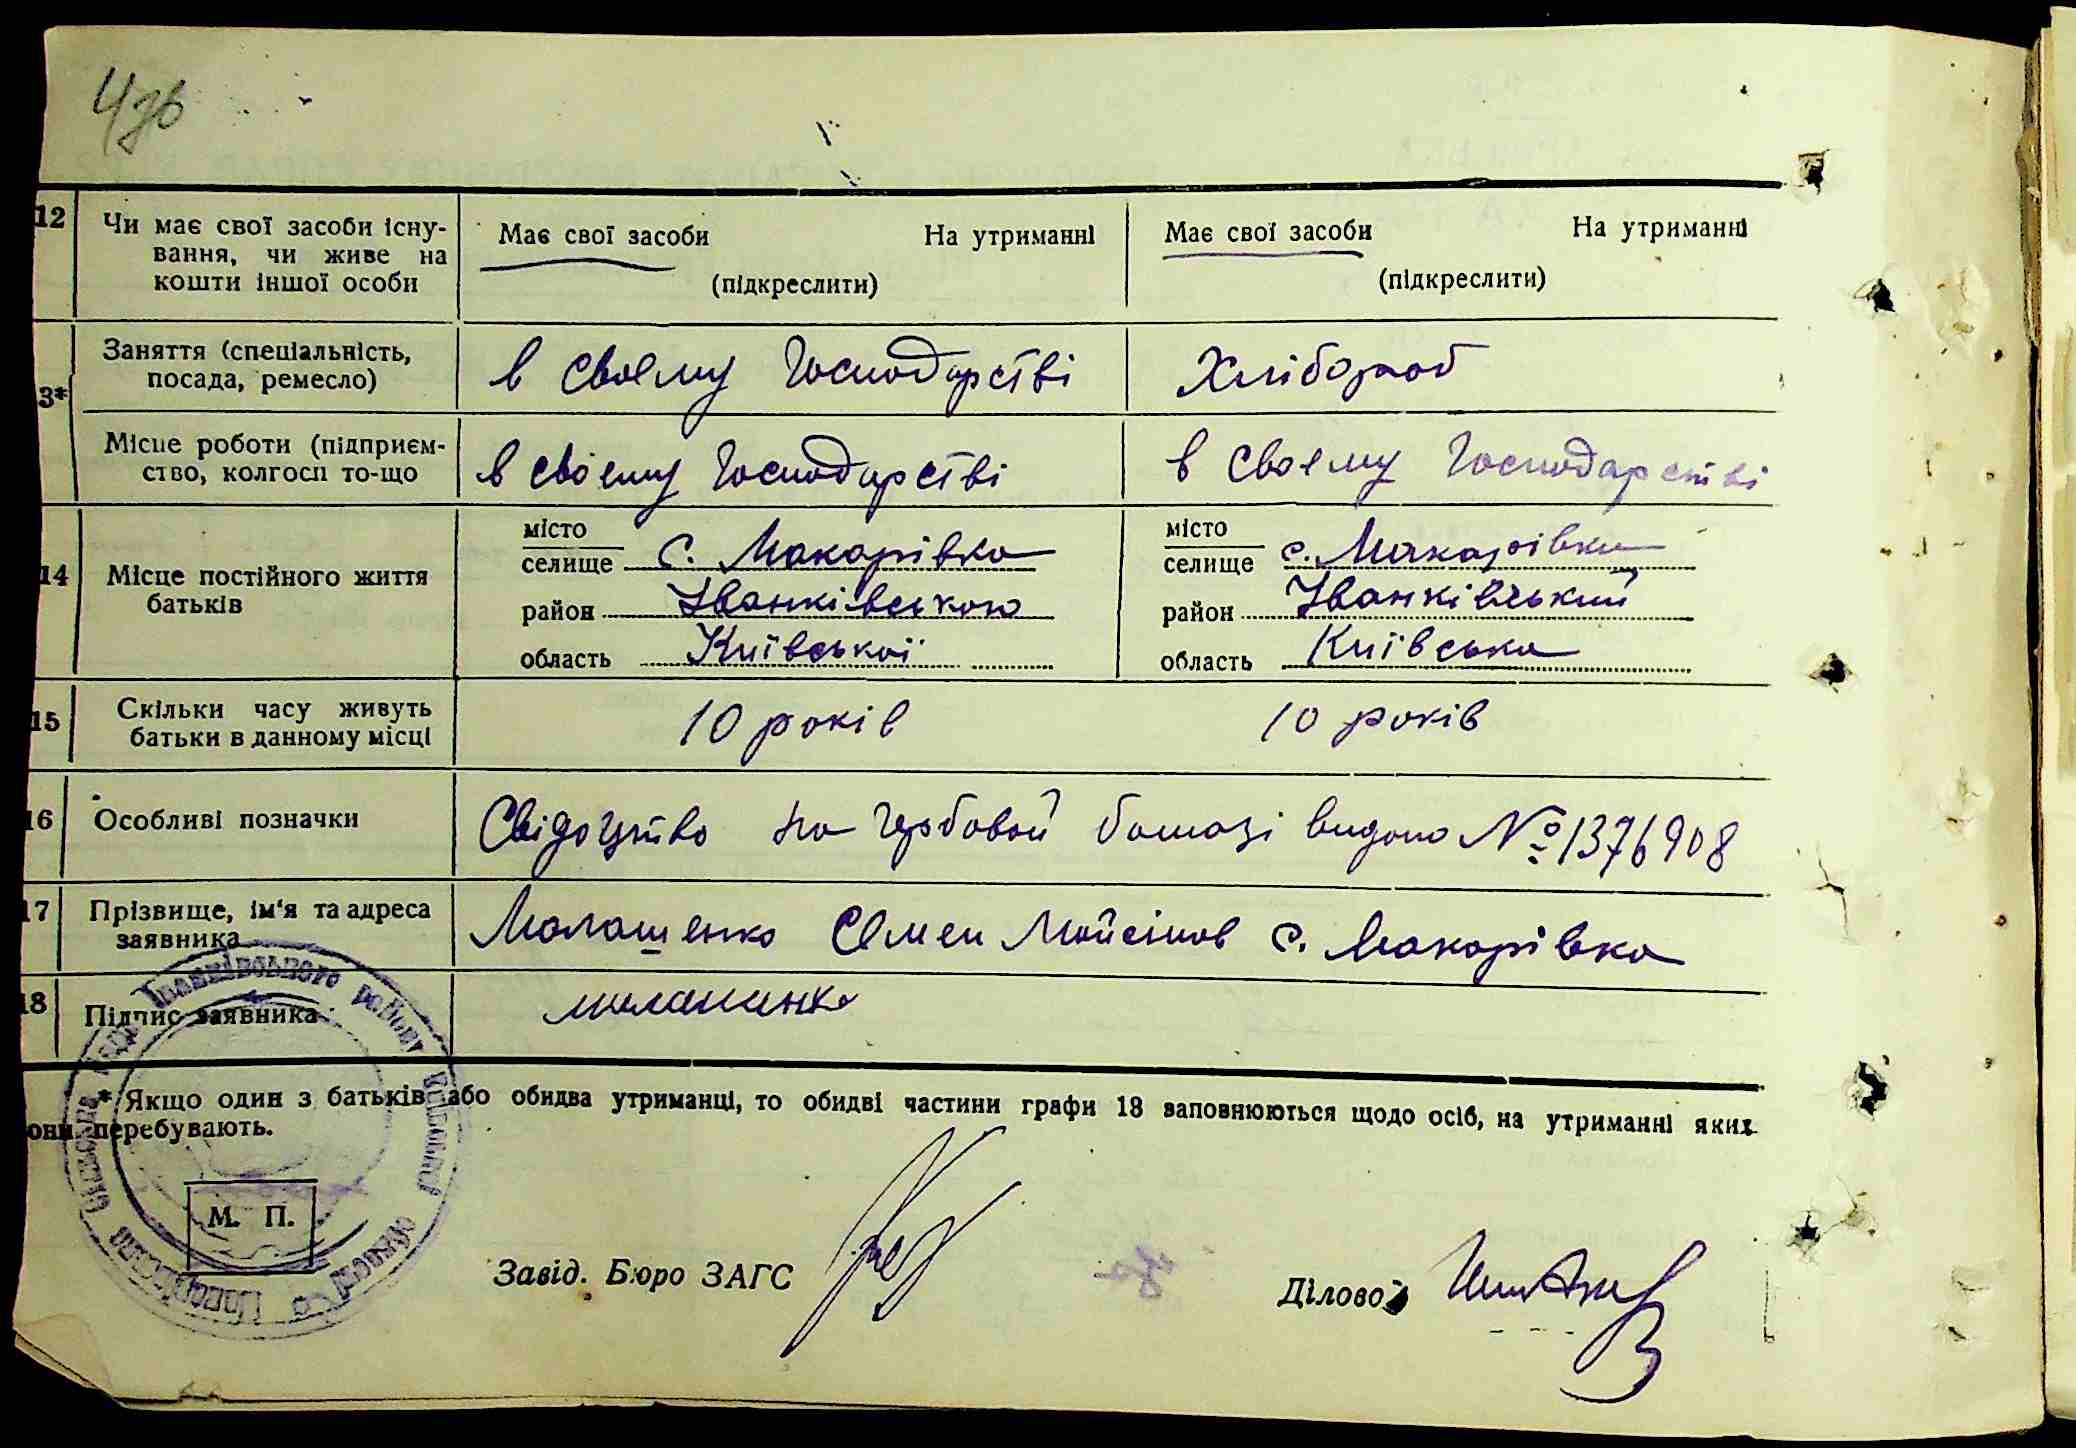 12 Чи має свої засоби існу-
вання, чи живе на
кошти іншої особи
Має свої засоби На утриманні
(підкреслити)
Має свої засоби На утриманні
(підкреслити)
3* Заняття (спеціальність,
посада, ремесло)
в своему господарстві
Хлібороб
Місце роботи (підприєм-
ство, колгосп то-що
в своему господарстві
в своему господарстві
14 Місце постійного життя
батьків
місто
селище с. Макарівка
район Іванківського
область Київської
місто
селище с. Макарівка
район Іванківський
область Київська
15 Скільки часу живуть
батьки в данному місці
10 років
10 років
16 Особливі позначки
Свідоцтво на гербовой бомазі видано № 1376908
17 Прізвище, ім'я та адреса
заявника
Малашенко Семен Мойсіїов с. Макарівка
18 Підпис заявника
* Якщо один з батьків або обидва утриманці, то обидві частини графи 18 заповнюються щодо осіб, на утриманні яких
они перебувають.
М. П.
Завід. Бюро ЗАГС
Діловод